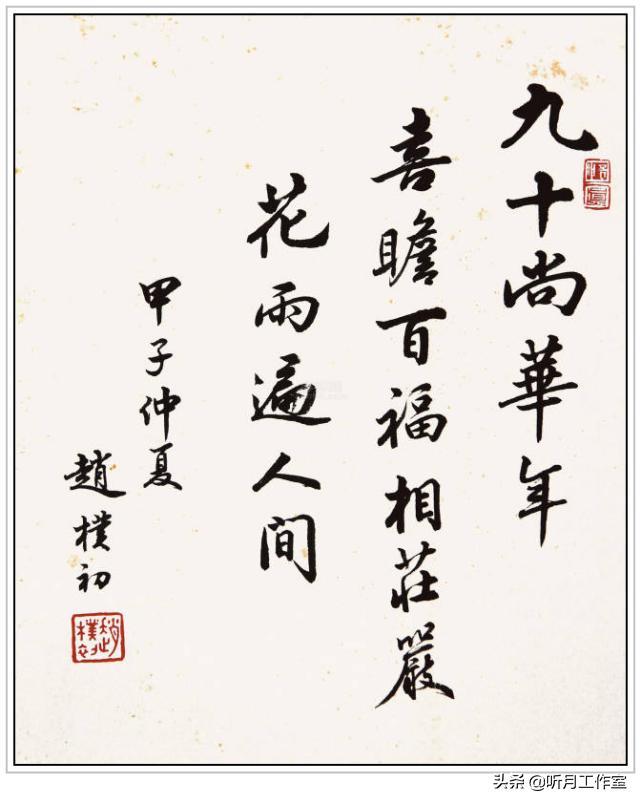 九十尚華年
喜瞻百福相莊嚴
花雨遍人间
甲子仲夏
趙樸初
趙樸初
头条 @听月工作室